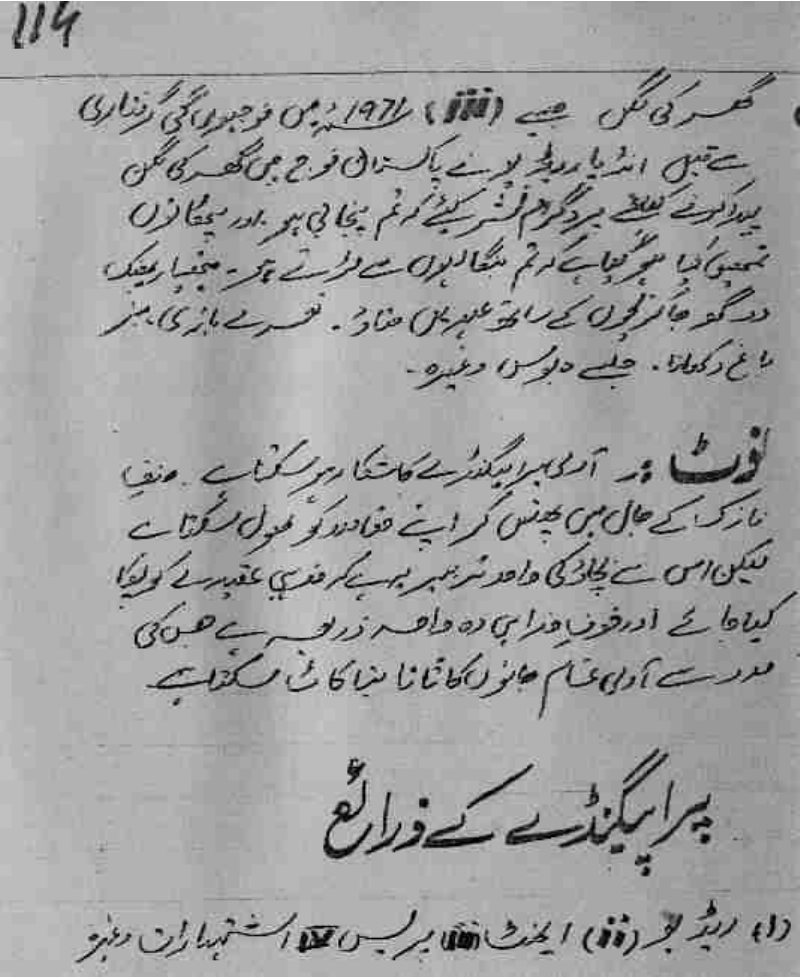 114
گھر کی لگن جیسے (iii) 1971ء میں فوجیوں کی گرفتاری
سے قبل انڈیا ریڈیو نے پاکستانی فوج میں گھر کی لگن
پیدا کرنے کیلئے پروگرام نشر کیئے کہ تم پنجابی ہو اور پٹھانوں
تمہیں کیا کہ تم بنگالیوں سے لڑتے ہو۔ ہتھیار پھینک
دو گھر جا کر بچوں کے ساتھ عید یں مناؤ۔ نعرے بازی، سبز
باغ دکھلانا۔ جلسے جلوس وغیرہ۔
نوٹ :۔ آدمی پراپیگنڈے کا شکار ہو سکتا ہے۔ صنفِ
نازک کے جال میں پھنس کر اپنے مقاصد کو بھول سکتا ہے
لیکن اس سے بچاؤ کی واحد تدبیر یہ ہے کہ مذہبی عقیدے کو پکا
کیا جائے اور خوفِ خدا ہی وہ واحد ذریعہ ہے جس کی
مدد سے آدمی تمام جالوں کا تانا بانا کاٹ سکتا ہے
پراپیگنڈے کے ذرائع
(i) ریڈیو (ii) ایجنٹ iii پریس iv اشتہارات وغیرہ